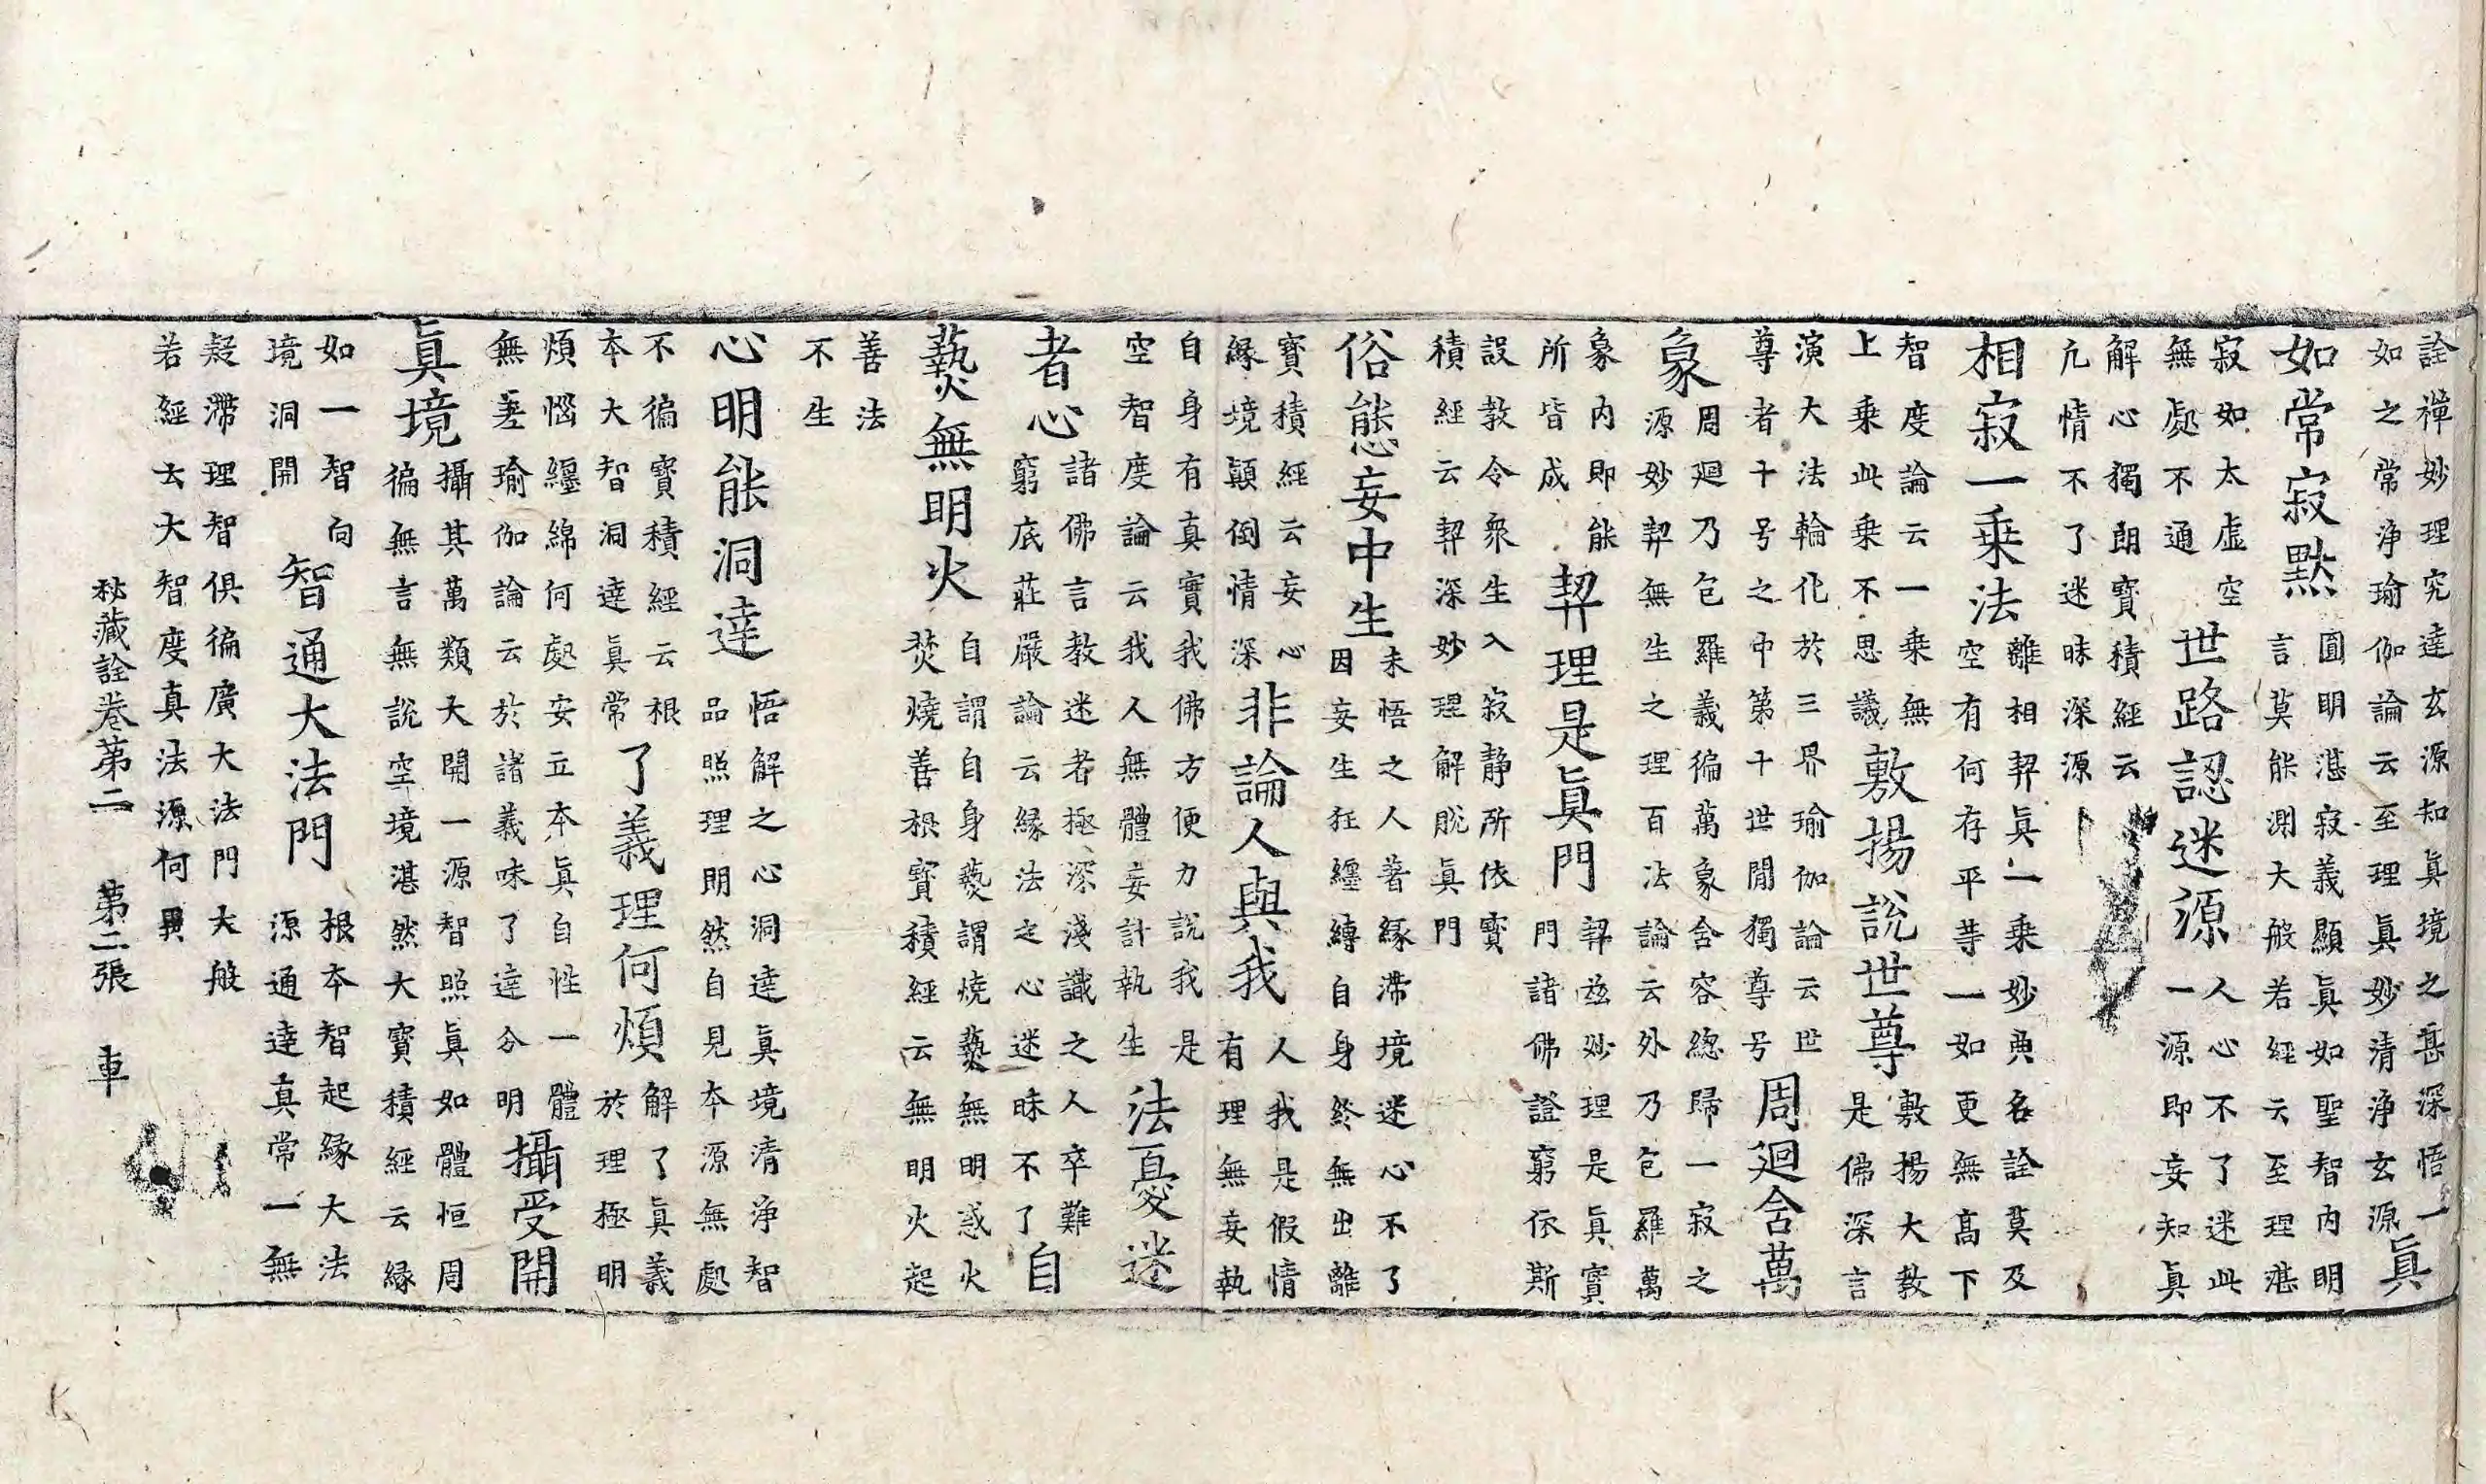 詮禪妙理究達玄源知真境之甚深悟一
如之常浄瑜伽論云至理真妙清浄玄源
眞
如常寂默
圓明湛寂義顯真如聖智内明
言莫能測大般若經云至理湛
寂如太虛空
無處不通
世路認迷源
人心不了迷此
一源即妄知真
解心獨朗寳積經云
凢情不了迷昧深源
相寂一乗法
離相契真一乗妙典名詮莫及
空有何存平等一如更無髙下
智度論云一乗無
上乗此乗不思議
敷揚說世尊
敷揚大教
是佛深言
演大法輪化於三界瑜伽論云世
尊者十号之中第十世間獨尊号
周廻含萬
象
周廻乃包羅義徧萬象含容緫歸一寂之
源妙契無生之理百法論云外乃包羅萬
象内即能
所皆成
契理是眞門
契兹妙理是真實
門諸佛證窮依斯
設教令衆生入寂静所依寳
積經云契深妙理解脫真門
俗態妄中生
未悟之人著緣滯境迷心不了
因妄生生狂纏縛自身終無出離
寳積經云妄心
緣境顛倒情深
非論人與我
人我是假情
有理無妄執
自身有真實我佛方便力說我是
空智度論云我人無體妄計執生
法憂迷
者心
諸佛言教迷者極深淺識之人卒難
窮底莊嚴論云緣法之心迷昧不了
自
爇無明火
自謂自身爇謂燒爇無明惑火
焚燒善根寳積經云無明火起
善法
不生
心明能洞達
悟解之心洞達真境清浄智
品照理朗然自見本源無處
不徧寳積經云根
本大智洞達真常
了義理何煩
解了真義
於理極明
煩惱纏綿何處安立本真自性一體
無差瑜伽論云於諸義味了達分明
攝受開
眞境
攝其萬類大開一源智照真如體恒周
徧無言無說空境湛然大寳積經云緣
如一智向
境洞開
智通大法門
根本智起緣大法
源通達真常一無
疑滯理智俱徧廣大法門大般
若經云大智度真法源何異
秘藏詮卷第二 第二張 車